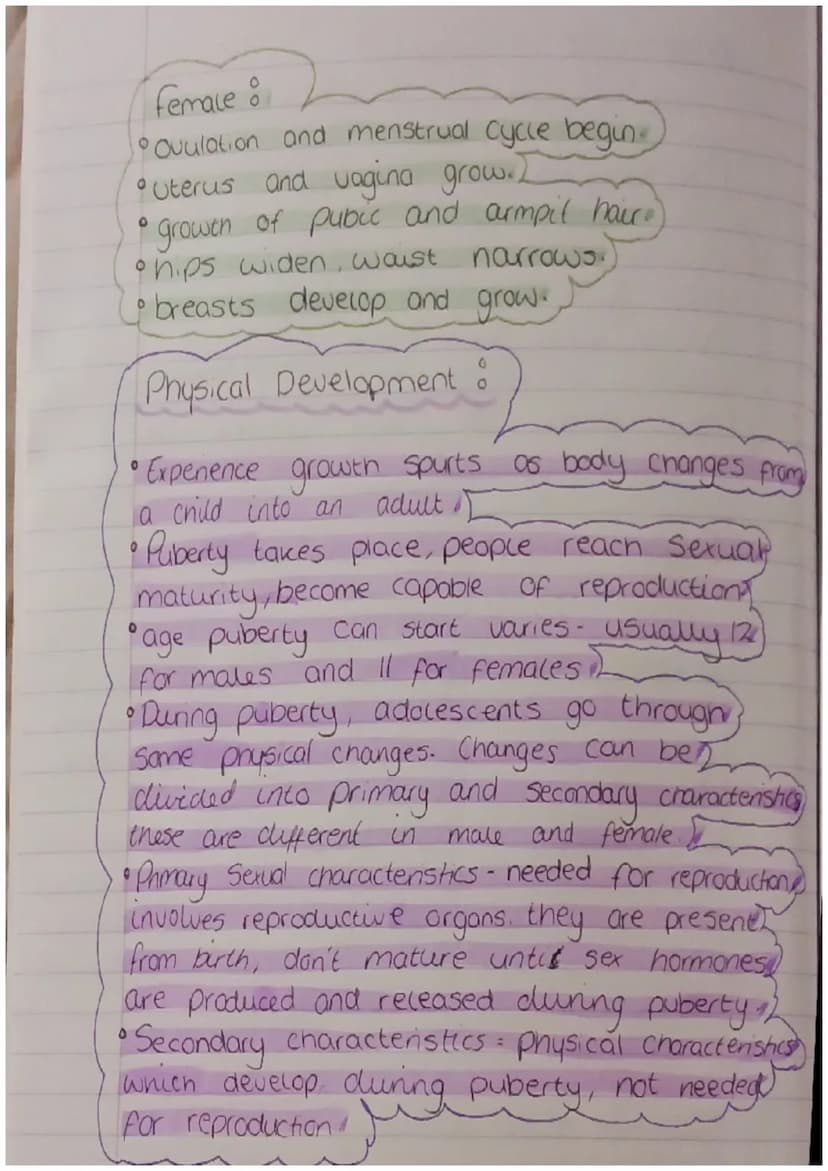 female:
• ovulation and menstrual cycle begin.
• uterus and vagina grow.
• growth of pubic and armpit hair.
• hips widen, waist narrows.
• breasts develop and grow.
Physical Development:
• Experience growth spurts as body changes from
a child into an adult.
• Puberty takes place, people reach sexual
maturity, become capable of reproduction
• age puberty can start varies - usually 12
for males and 11 for females.
• During puberty, adolescents go through
some physical changes. Changes can be
divided into primary and secondary characteristics
these are different in male and female.
• Primary sexual characteristics - needed for reproduction,
involves reproductive organs. they are present
from birth, don't mature until sex hormones
are produced and released during puberty.
• Secondary characteristics = physical characteristics
which develop during puberty, not needed
for reproduction.